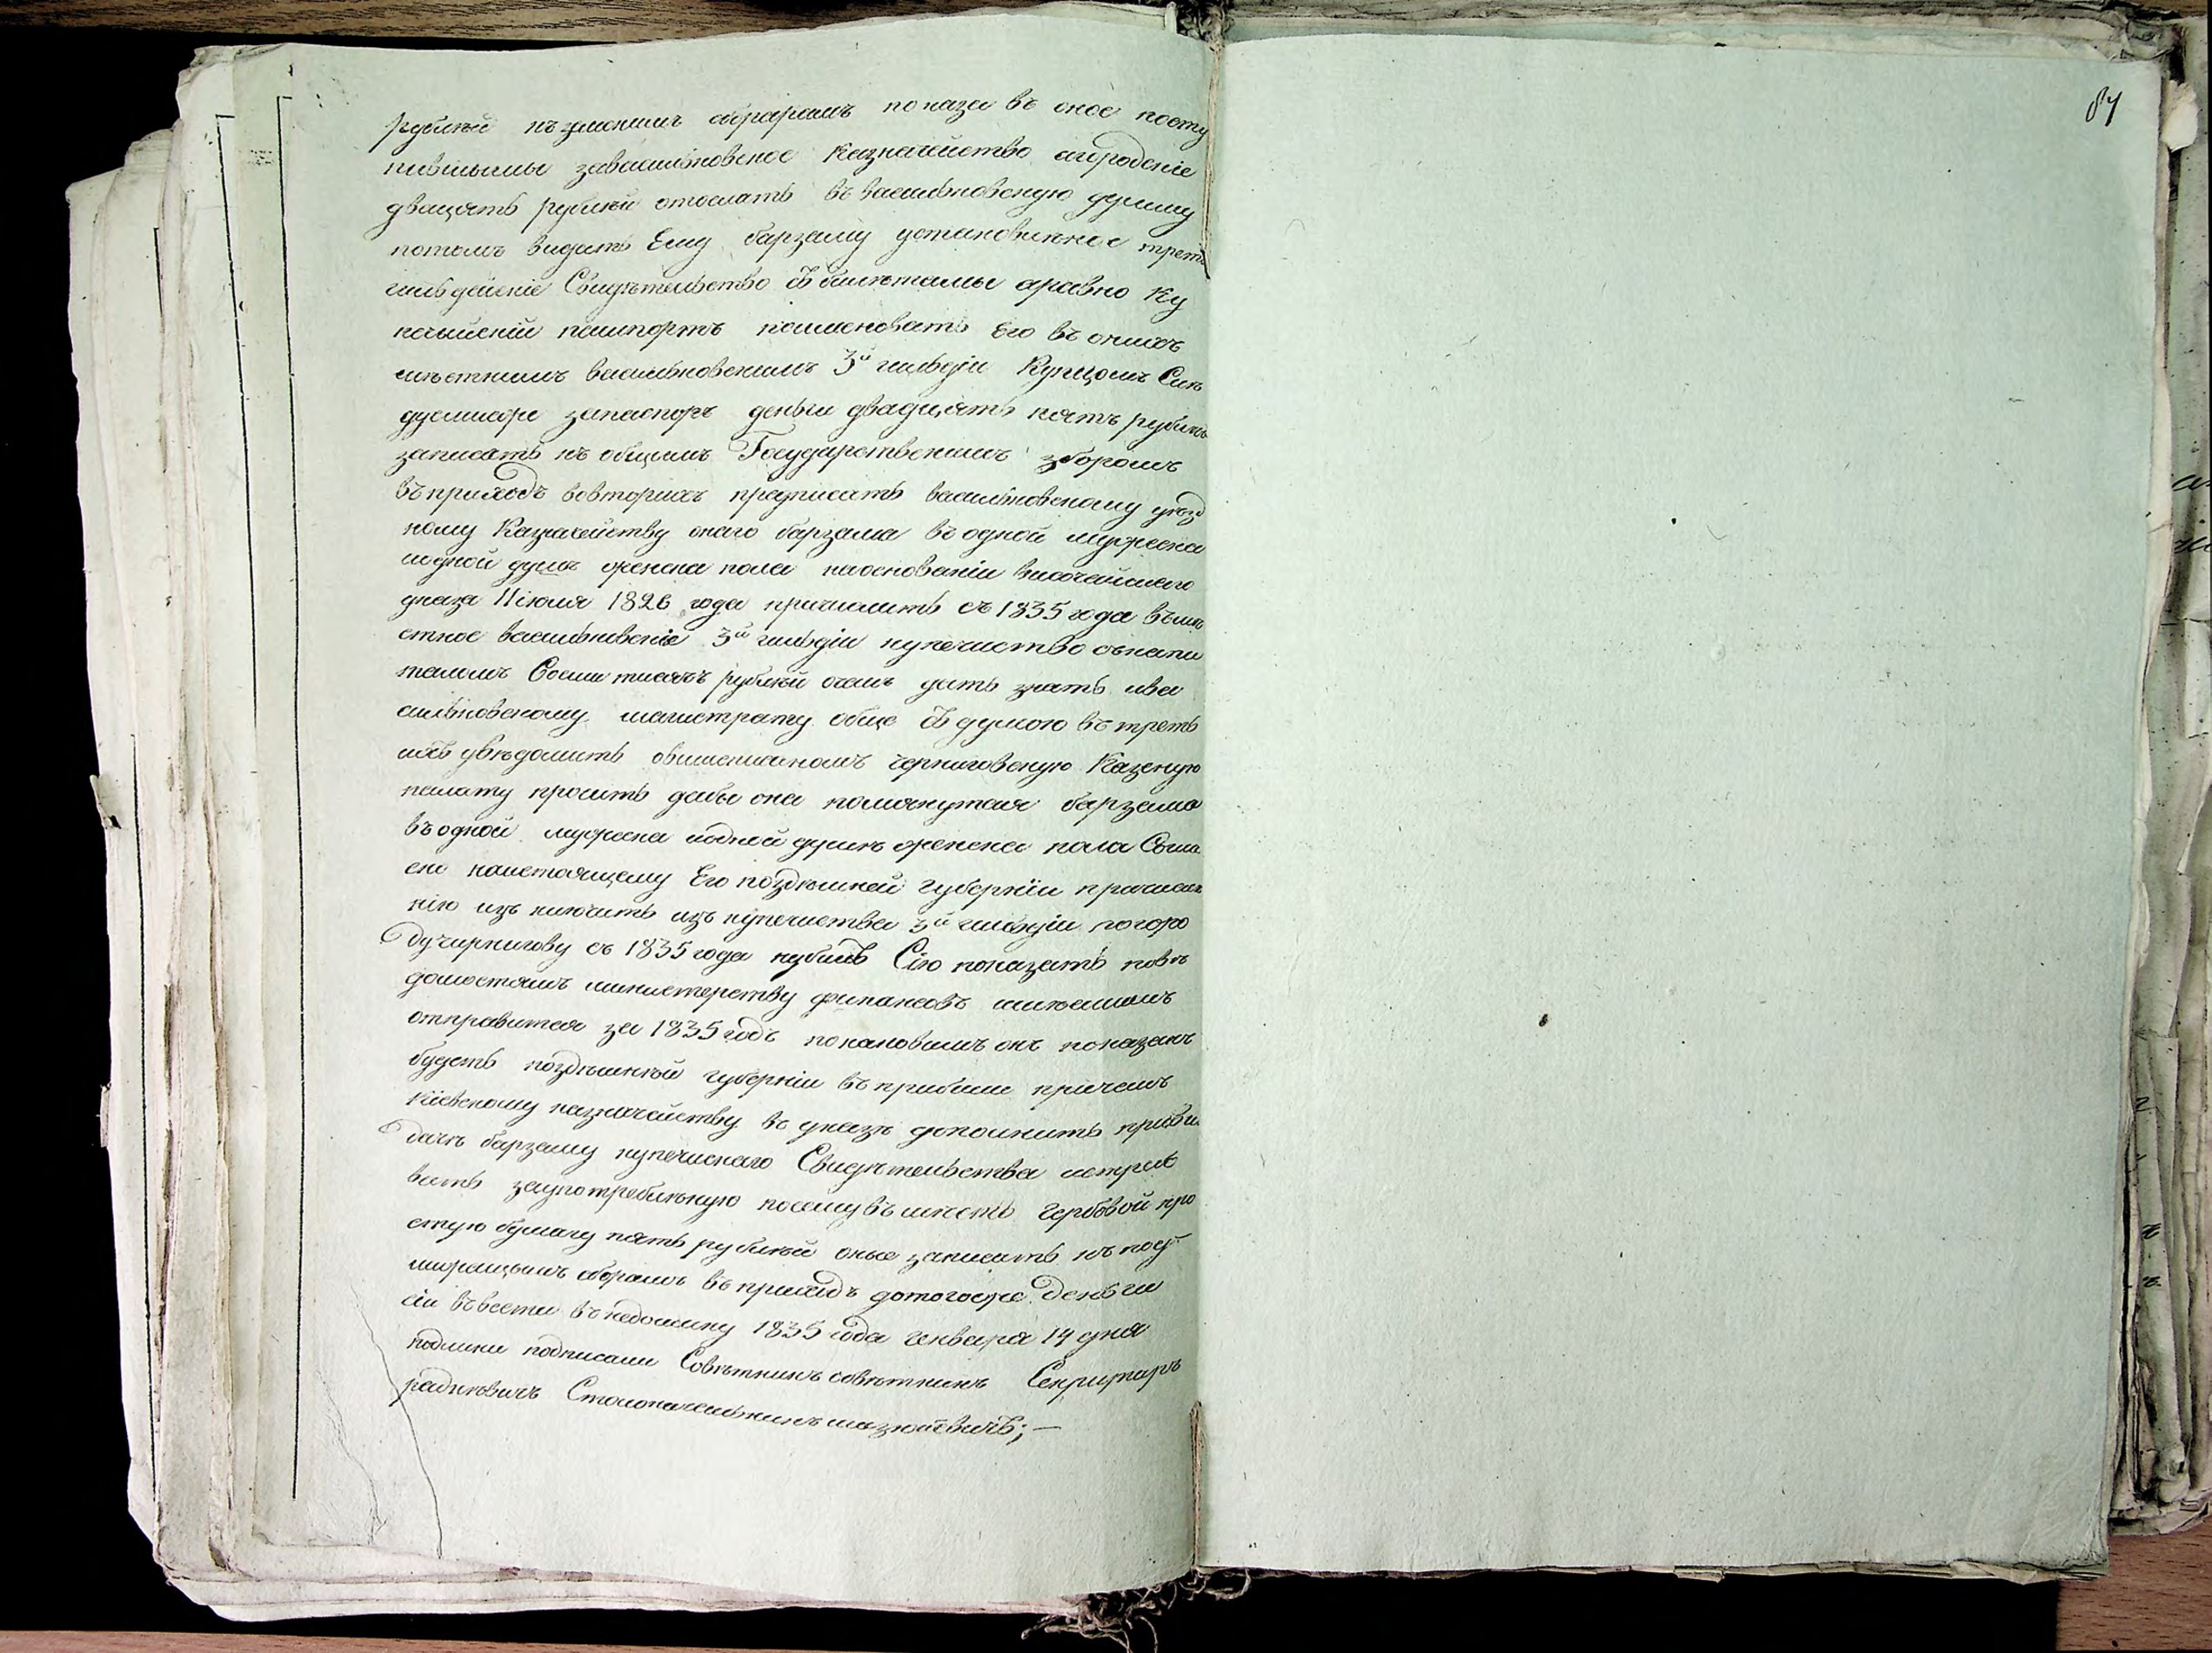 рублей къ земскимъ зборамъ показа въ оное посту
пившимы завасильковское Казначейство агородские
двацать рублей отослать въ васильковскую думу
потомъ видать Ему барзаму установленное трет
гильдейские Свидѣтельство съ билѣтамы аравно Ку
печыйскій пашпортъ поименовать Его въ онихъ
мѣстнимъ васильковскимъ 3й гильдіи Купцомъ Сие
дуемиоже запаспорт деньги двадцять пять рублей
записать къ общимъ Государственнимъ зборамъ
въ приходъ вовторихъ предписать васильковскому уезд
ному Казначейству онаго барзама въ одной мужеска
иодной душъ женска пола наоснованіи височайшаго
указа 11 іюля 1826 года причислить съ 1835 года въмѣ
стное васильковские 3й гильдіи купечиство съкапи
таломъ Восми тисячъ рублей очемъ дать знать ива
сильковскому магистрату обще съ думою въ треть
ихъ увѣдомить овишеписаномъ черниговскую Казеную
палату просить дабы она помянутаго барзама
въ одной мужеска иодной душѣ женска пола Согла
сно настоящему Его поздѣшней губерніи причисле
нію изъ ключить изъ купечиства 3й гильдіи погоро
ду чирнигову съ 1835 года и Сію показать повѣ
домостямъ министерству финансовъ имѣемимъ
отправится за 1835 годъ покаковимъ онъ показанъ
будеть поздѣшней губерніи въ прибили причемъ
Кіевскому казначейству въ указѣ дополнить привы
дачѣ барзаму купечискаго Свидѣтельства истребо
вать заупотребленную посемувъ мѣсто гербовой про
стую бумагу пять рублей оные записать къ
зборамъ въ приходъ дотогоже деньги
сіи въвести въ недоимку 1835 года генваря 14 дня
подлини подписали Совѣтникъ совѣтникъ Секритаръ
радкевичъ Столоначальникъ мазюкевичъ;—
84